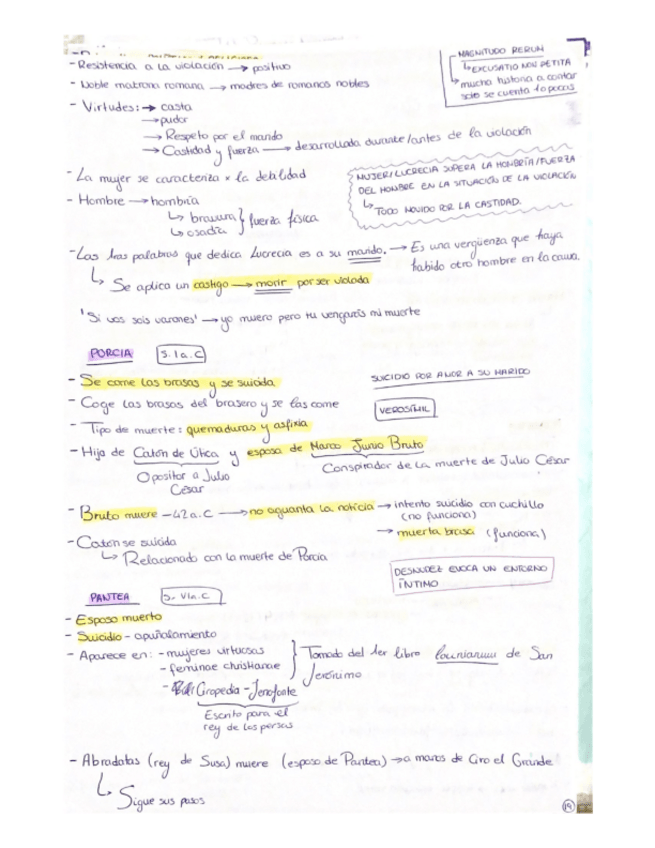 - Resistencia a la violación → positivo
- Noble matrona romana → madres de romanos nobles
MAGNITUDO RERUM
↳ EXCUSATIO NON PETITA
↳ mucha historia a contar
solo se cuenta 10 pocas
- Virtudes: → casta
→ pudor
→ Respeto por el marido
→ Castidad y fuerza → desarrollada durante/antes de la violación
- La mujer se caracteriza x la debilidad
MUJER/LUCRECIA SUPERA LA HOMBRÍA/FUERZA
DEL HOMBRE EN LA SITUACIÓN DE LA VIOLACIÓN
↳ TODO MOVIDO POR LA CASTIDAD.
- Hombre → hombría
↳ bravura } fuerza física
↳ osadía
- Las palabras que dedica Lucrecia es a su marido. → Es una vergüenza que haya
habido otro hombre en la cama.
↳ Se aplica un castigo → morir por ser violada
'Si vos sois varones' → yo muero pero tu vengarás mi muerte
PORCIA S. I a.C
- Se come las brasas y se suicida
SUICIDIO POR AMOR A SU MARIDO
- Coge las brasas del brasero y se las come
VEROSÍMIL
- Tipo de muerte: quemaduras y asfixia
- Hija de Catón de Útica y esposa de Marco Junio Bruto
Opositor a Julio
César
Conspirador de la muerte de Julio César
- Bruto muere - 42 a.C → no aguanta la noticia → intento suicidio con cuchillo
(no funciona)
→ muerta brasa (funciona)
- Catón se suicida
↳ Relacionado con la muerte de Porcia
DESNUDEZ EVOCA UN ENTORNO
ÍNTIMO
PANTEA S. VI a.C
- Esposo muerto
- Suicidio - apuñalamiento
- Aparece en: - mujeres virtuosas
- feminae christianae
} Tomado del 1er libro Iouinianum de San
Jerónimo
- Ciropedia - Jenofonte
Escrito para el
rey de los persas
- Abradatas (rey de Susa) muere (esposo de Pantea) → a manos de Ciro el Grande
↳ Sigue sus pasos
14